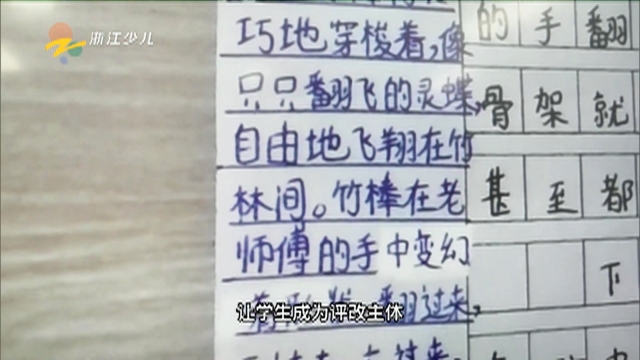 浙江少儿
巧地穿梭着,像
只只翻飞的灵蝶,
自由地飞翔在竹
林间。竹棒在老
师傅的手中变幻
翻过来,
的手翻
骨架就
甚至都
下
让学生成为评改主体